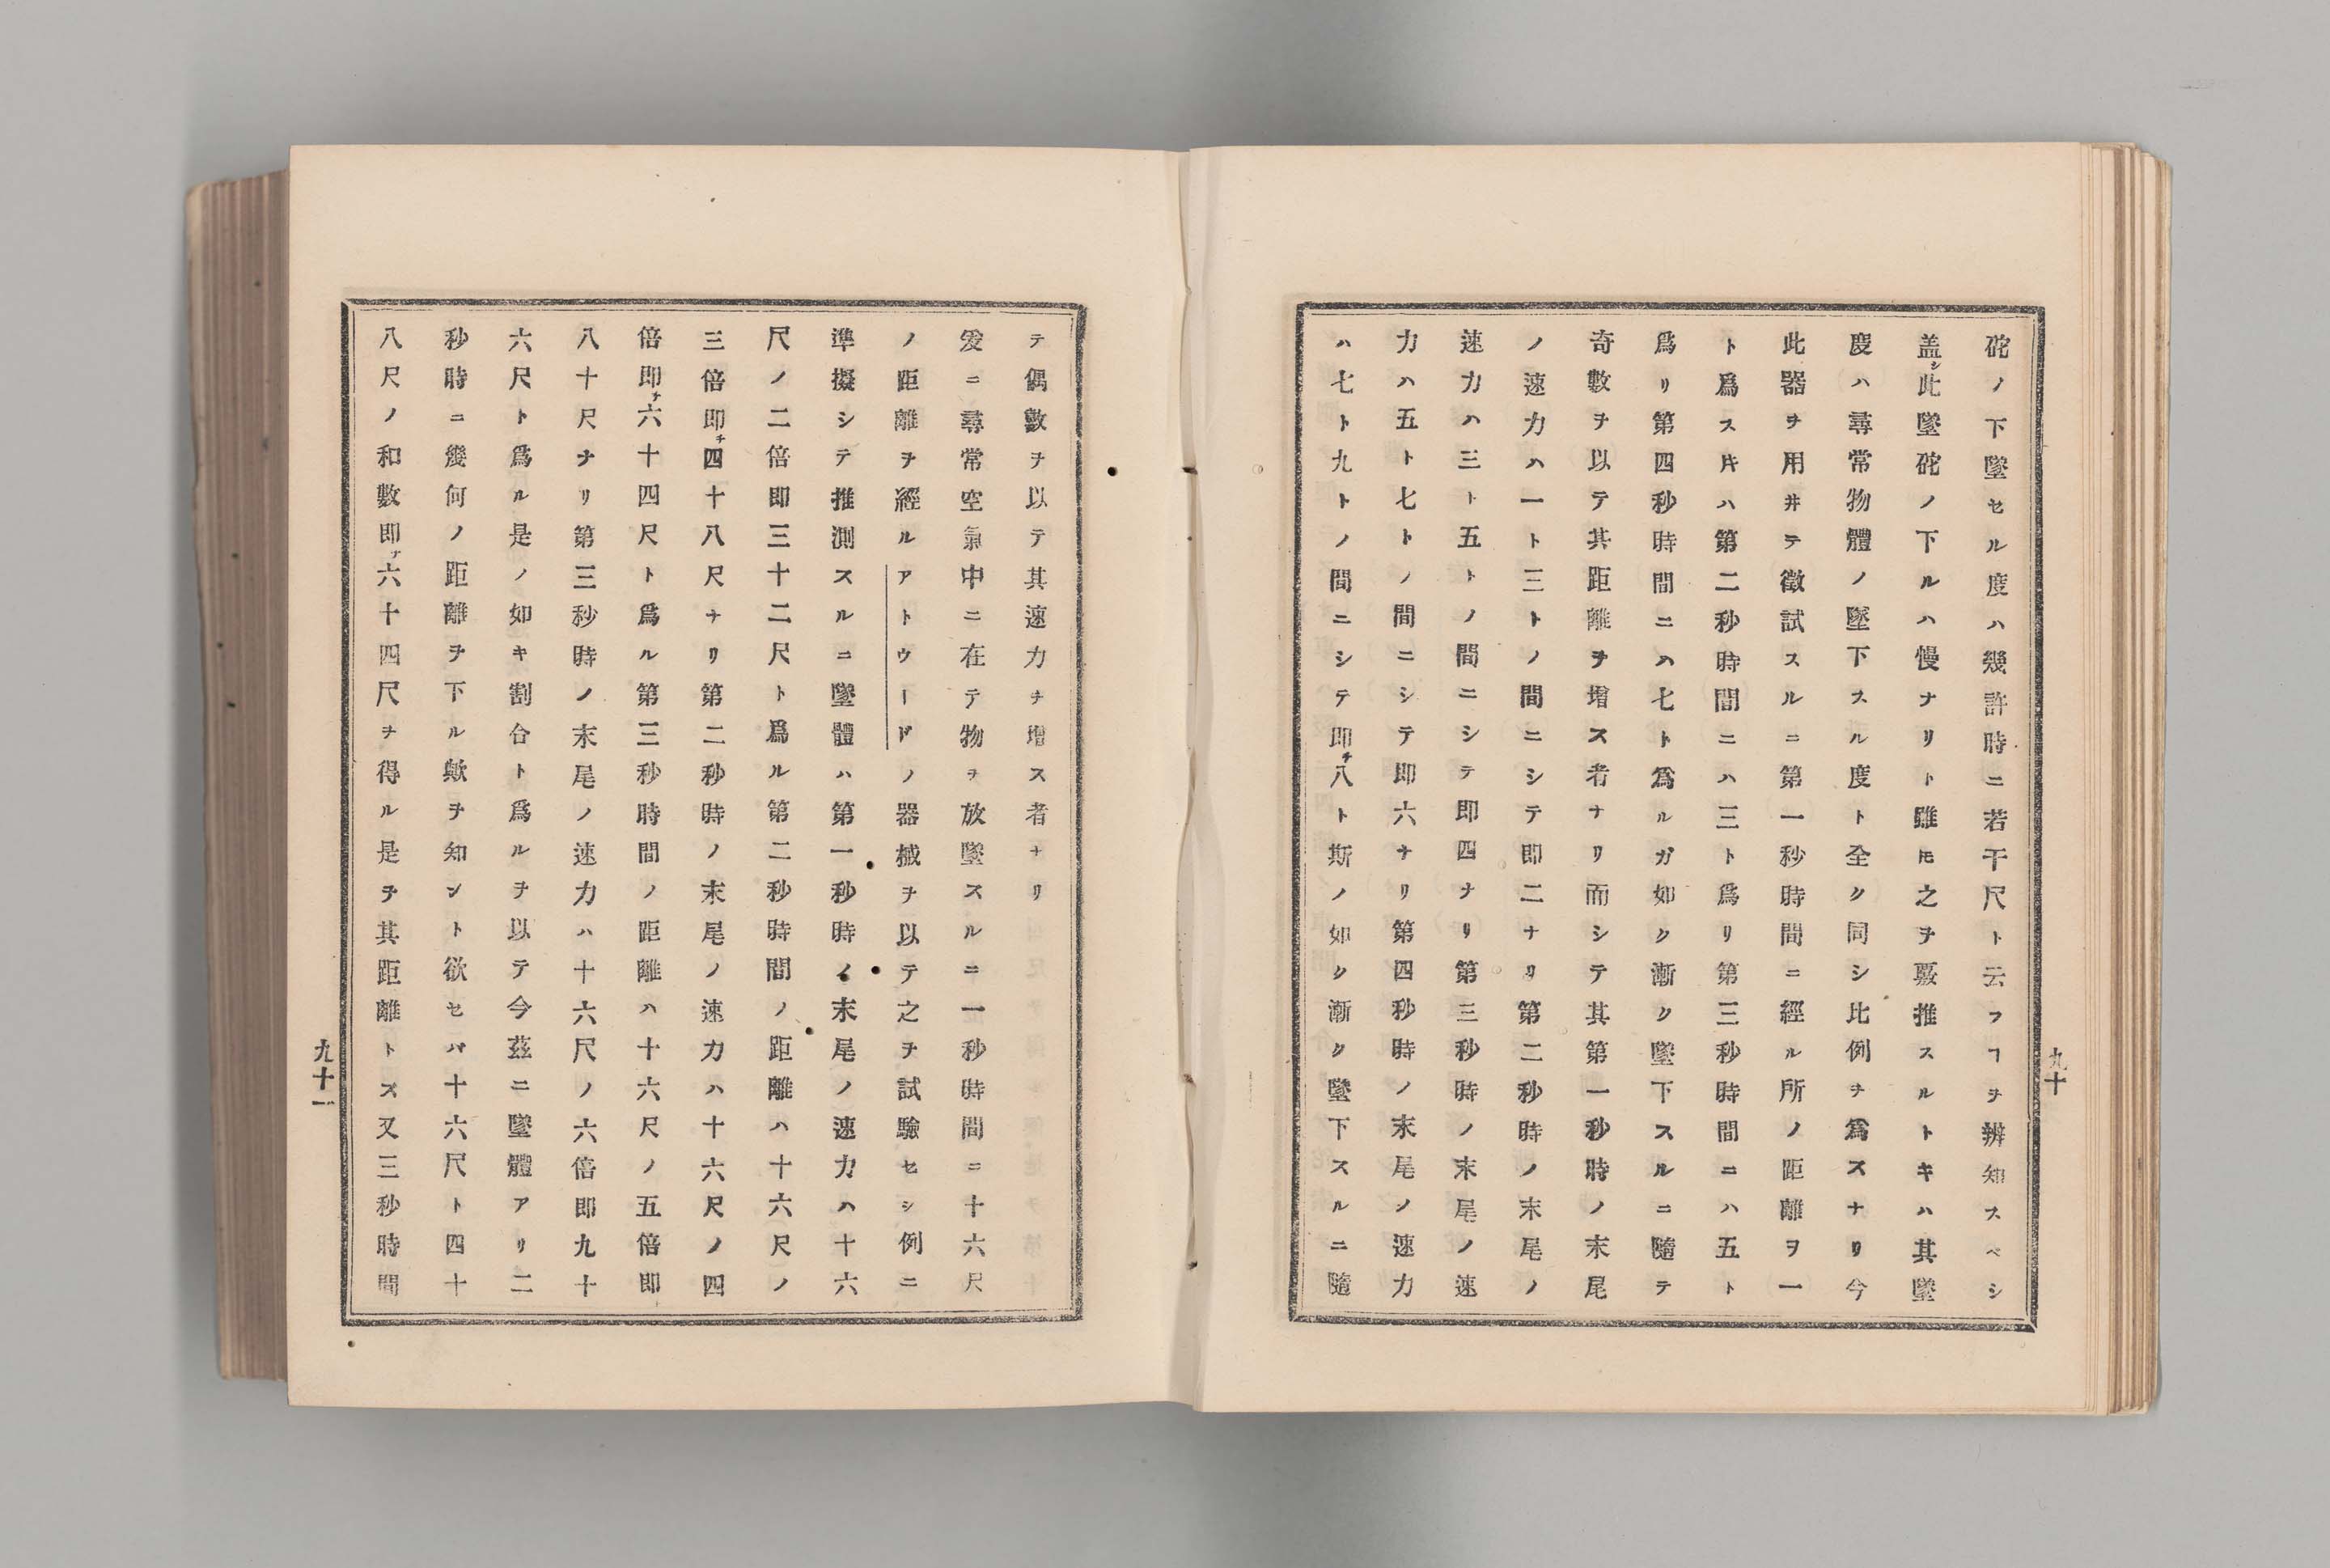 砣ノ下墜セル度ハ幾許時ニ若干尺ト云フヿヲ辨知スベシ
盖シ此墜砣ノ下ルハ慢ナリト雖𪜈之ヲ覈推スルトキハ其墜
度ハ尋常物體ノ墜下スル度ト全ク同シ比例ヲ爲スナリ今
此器ヲ用井テ徵試スルニ第一秒時間ニ經ル所ノ距離ヲ一
ト爲ス片ハ第二秒時間ニハ三ト爲リ第三秒時間ニハ五ト
爲リ第四秒時間ニハ七ト爲ルガ如ク漸ク墜下スルニ隨テ
奇數ヲ以テ其距離ヲ增ス者ナリ而シテ其第一秒時ノ末尾
ノ速力ハ一ト三トノ間ニシテ即二ナリ第二秒時ノ末尾ノ
速力ハ三ト五トノ間ニシテ即四ナリ第三秒時ノ末尾ノ速
力ハ五ト七トノ間ニシテ即六ナリ第四秒時ノ末尾ノ速力
ハ七ト九トノ間ニシテ即チ八ト斯ノ如ク漸ク墜下スルニ隨
九十
テ偶數ヲ以テ其速力ヲ增ス者ナリ
爰ニ尋常空氣中ニ在テ物ヲ放墜スルニ一秒時間ニ十六尺
ノ距離ヲ經ルアトウード ノ器械ヲ以テ之ヲ試驗セシ例ニ
準擬シテ推測スルニ墜體ハ第一秒時ノ末尾ノ速力ハ十六
尺ノ二倍即三十二尺ト爲ル第二秒時間ノ距離ハ十六尺ノ
三倍即チ四十八尺ナリ第二秒時ノ末尾ノ速力ハ十六尺ノ四
倍即チ六十四尺ト爲ル第三秒時間ノ距離ハ十六尺ノ五倍即
八十尺ナリ第三秒時ノ末尾ノ速力ハ十六尺ノ六倍即九十
六尺ト爲ル是ノ如キ割合ト爲ルヲ以テ今茲ニ墜體アリ二
秒時ニ幾何ノ距離ヲ下ル歟ヲ知ント欲セバ十六尺ト四十
八尺ノ和數即チ六十四尺ヲ得ル是ヲ其距離トス又三秒時間
九十一